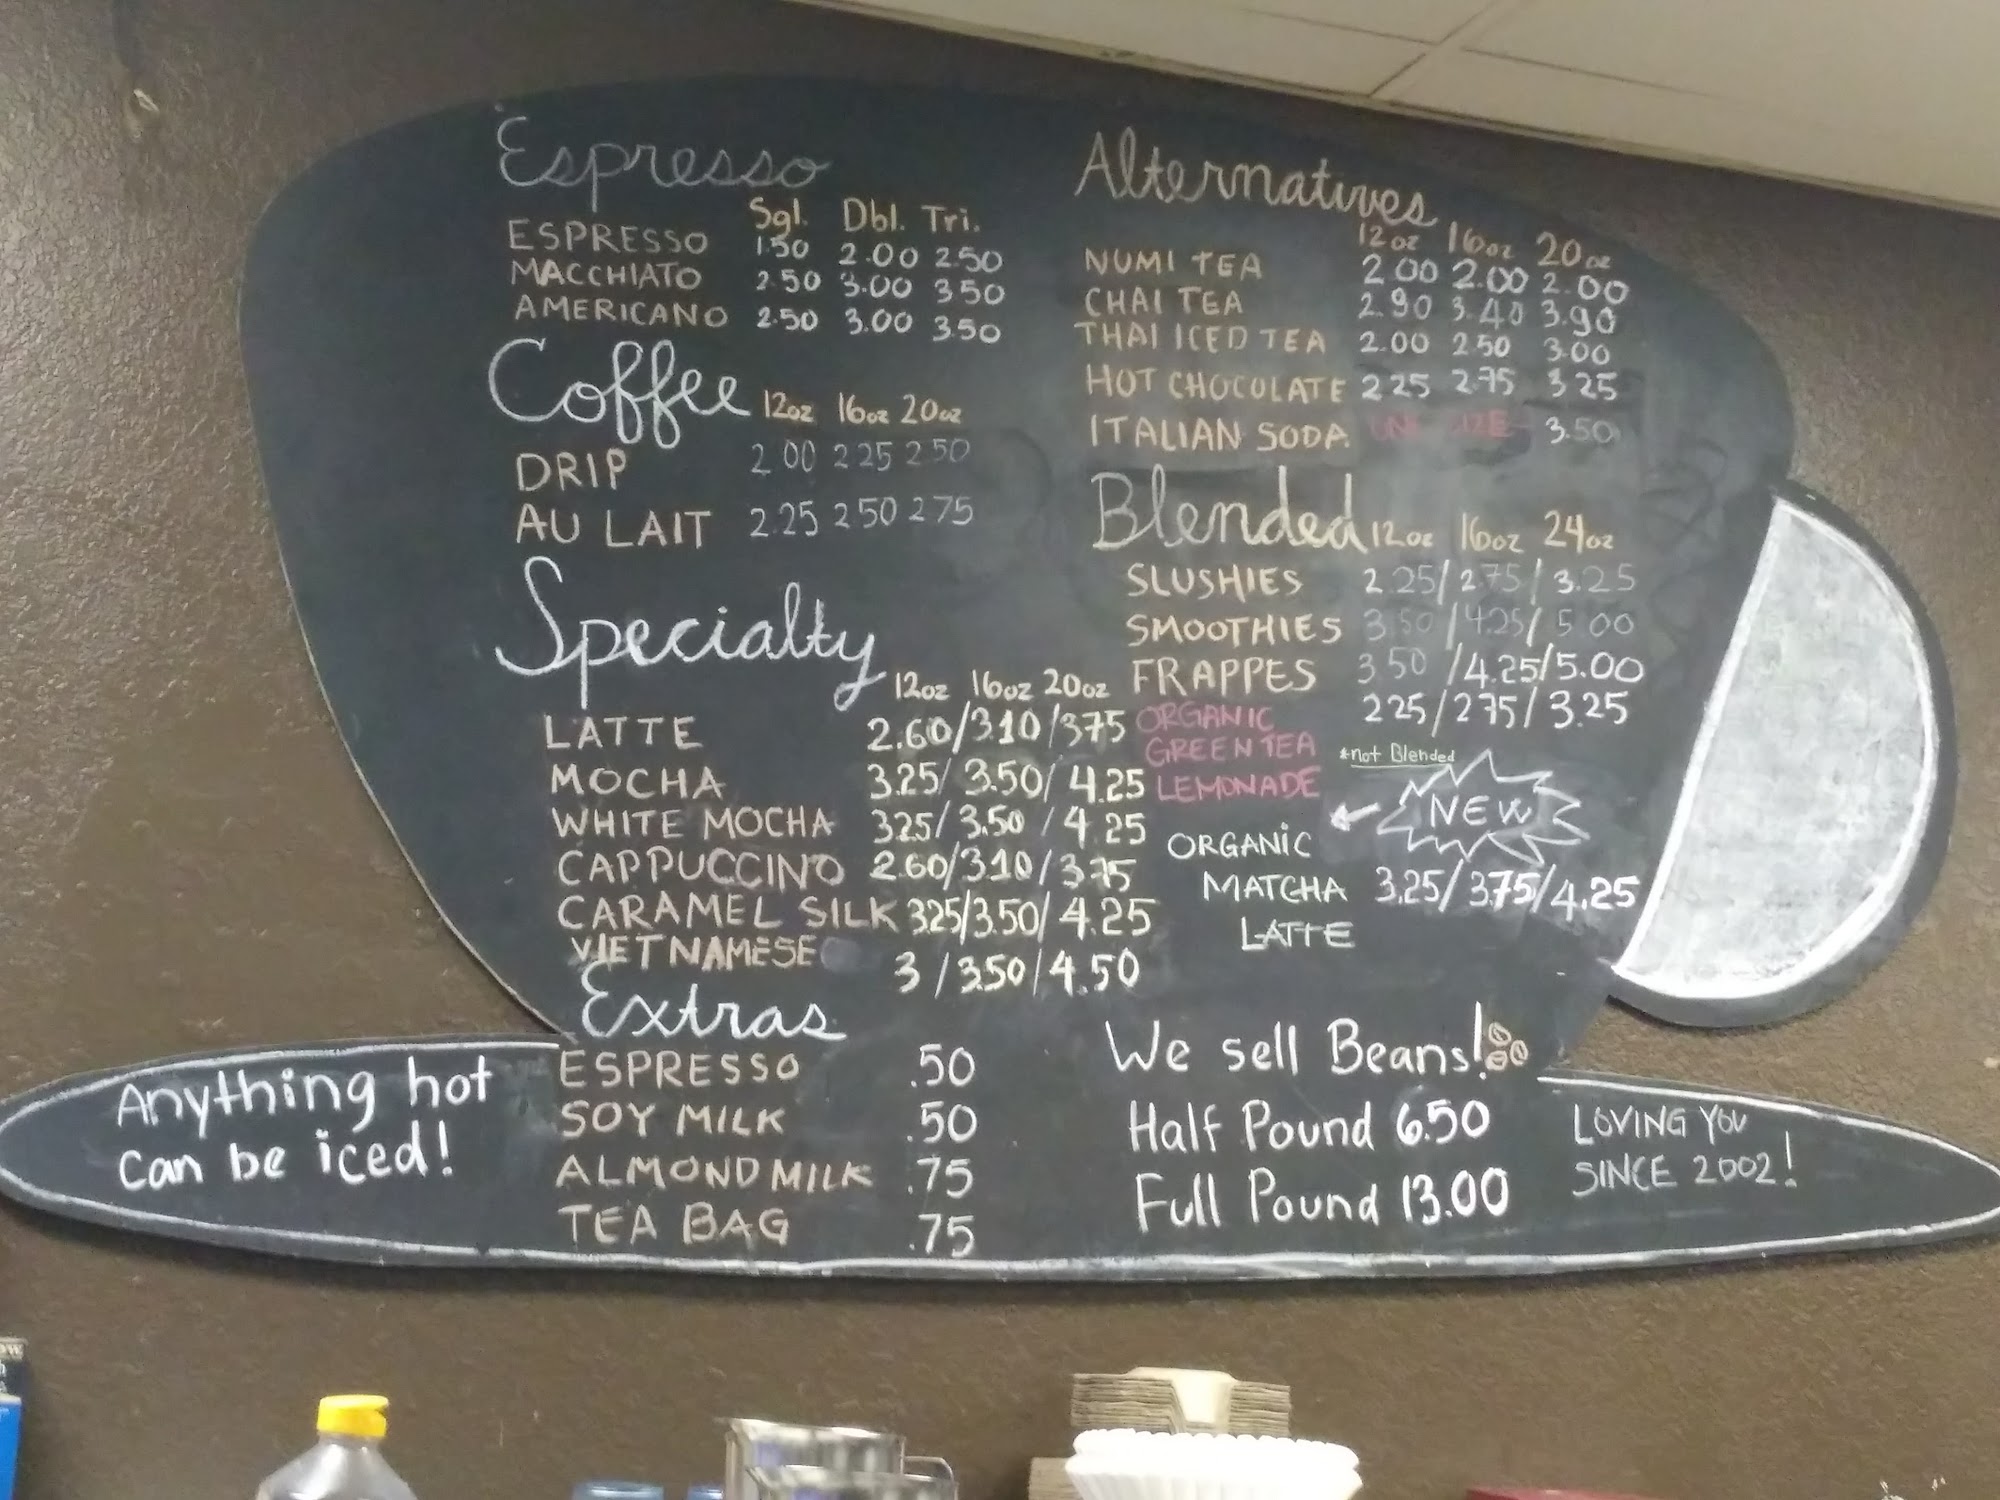 Espresso
Sgl. Dbl. Tri.
ESPRESSO 1.50 2.00 2.50
MACCHIATO 2.50 3.00 3.50
AMERICANO 2.50 3.00 3.50
Coffee 12oz 16oz 20oz
DRIP 2.00 2.25 2.50
AU LAIT 2.25 2.50 2.75
Specialty
12oz 16oz 20oz
LATTE 2.60/3.10/3.75
MOCHA 3.25/3.50/4.25
WHITE MOCHA 3.25/3.50/4.25
CAPPUCCINO 2.60/3.10/3.75
CARAMEL SILK 3.25/3.50/4.25
VIETNAMESE 3/3.50/4.50
Extras
ESPRESSO .50
SOY MILK .50
ALMOND MILK .75
TEA BAG .75
Anything hot
can be iced!
Alternatives
12oz 16oz 20oz
NUMI TEA 2.00 2.00 2.00
CHAI TEA 2.90 3.40 3.90
THAI ICED TEA 2.00 2.50 3.00
HOT CHOCOLATE 2.25 2.75 3.25
ITALIAN SODA ONE SIZE 3.50
Blended 12oz 16oz 24oz
SLUSHIES 2.25/2.75/3.25
SMOOTHIES 3.50/4.25/5.00
FRAPPES 3.50/4.25/5.00
ORGANIC 2.25/2.75/3.25
GREEN TEA *not Blended
LEMONADE
NEW
ORGANIC
MATCHA 3.25/3.75/4.25
LATTE
We sell Beans!
Half Pound 6.50
Full Pound 13.00
LOVING YOU
SINCE 2002!